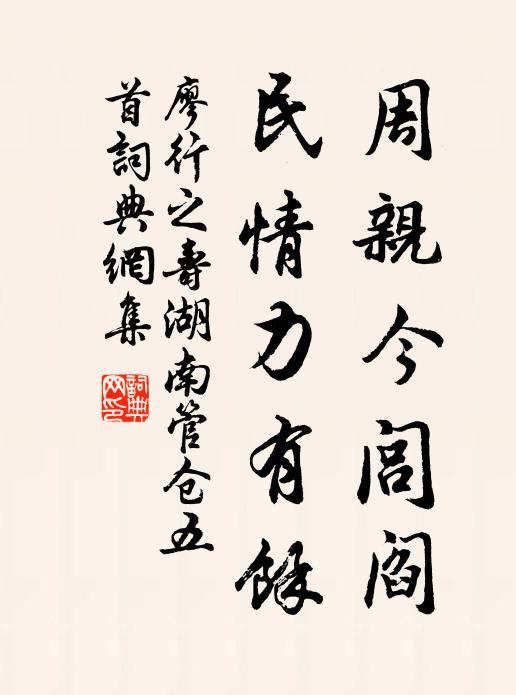 周親今閭閻
民情力有餘
廖行之壽湖南管仓五
首詞典網集
詞典網印